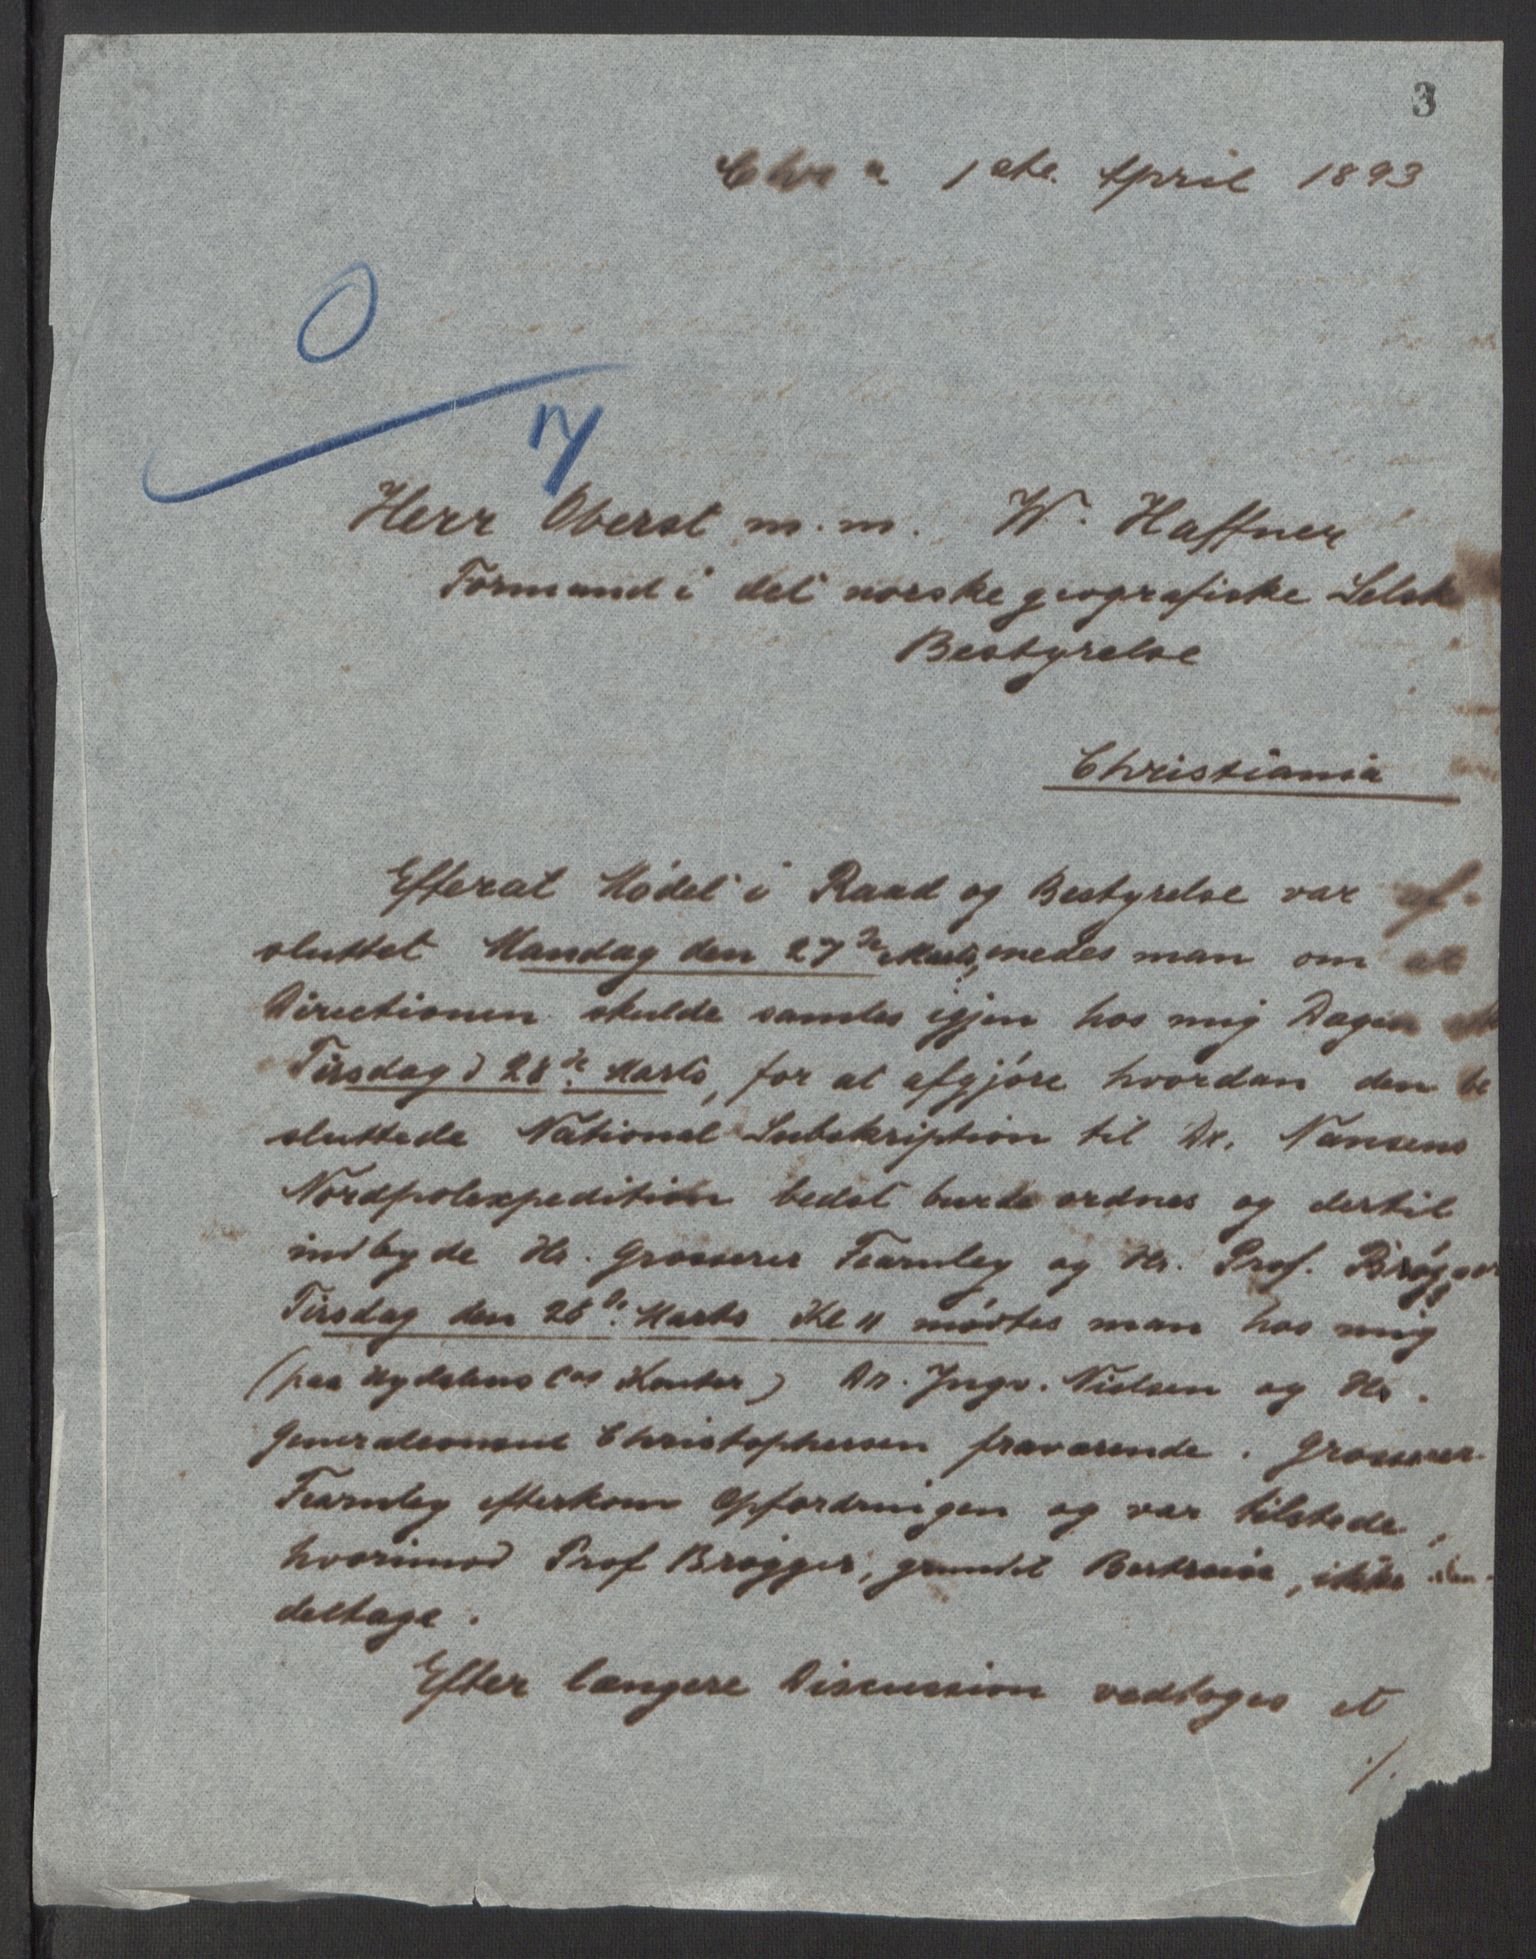 3
Chra 1ste April 1893
Herr Oberst m.m. W. Haffner
Formand i det norske geografiske Selsk
Bestyrelse
Christiania
Efterat Mødet i Raad og Bestyrelse var af-
sluttet Mandag den 27de Marts, enedes man om at
Directionen skulde samles igjen hos mig Dagen
Tirsdag d 28de Marts, for at afgjøre hvordan den be
sluttede National Subskription til Dr. Nansens
Nordpolexpedition bedst burde ordnes og dertil
indbyde Hr. Grosserer Fearnley og Hr. Prof. Brøgger
Tirsdag den 28de Marts Kl 11 mødtes man hos mig
(paa Nydalens Cos Kontor) Dr. Yngv. Nielsen og Hr.
Generalconsul Christophersen fraværende. Grosserer
Fearnley efterkom Opfordringen og var tilstede,
hvorimod Prof Brøgger, grundet Bortreise, ikke
deltage.
Efter længere Discussion vedtoges et
./.